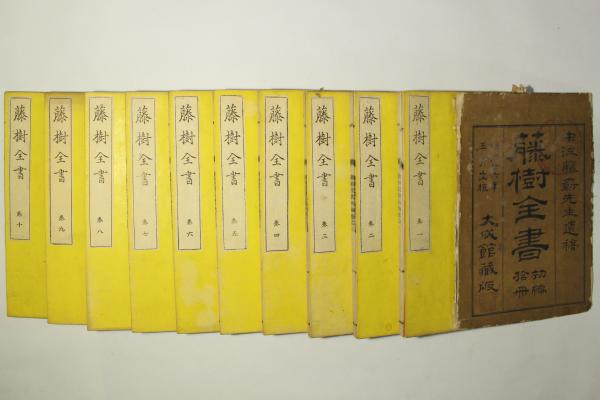 中江藤樹先生遺稿
藤樹全書
初編
拾冊
大成館藏版
藤樹全書
卷一
藤樹全書
卷二
藤樹全書
卷三
藤樹全書
卷四
藤樹全書
卷五
藤樹全書
卷六
藤樹全書
卷七
藤樹全書
卷八
藤樹全書
卷九
藤樹全書
卷十